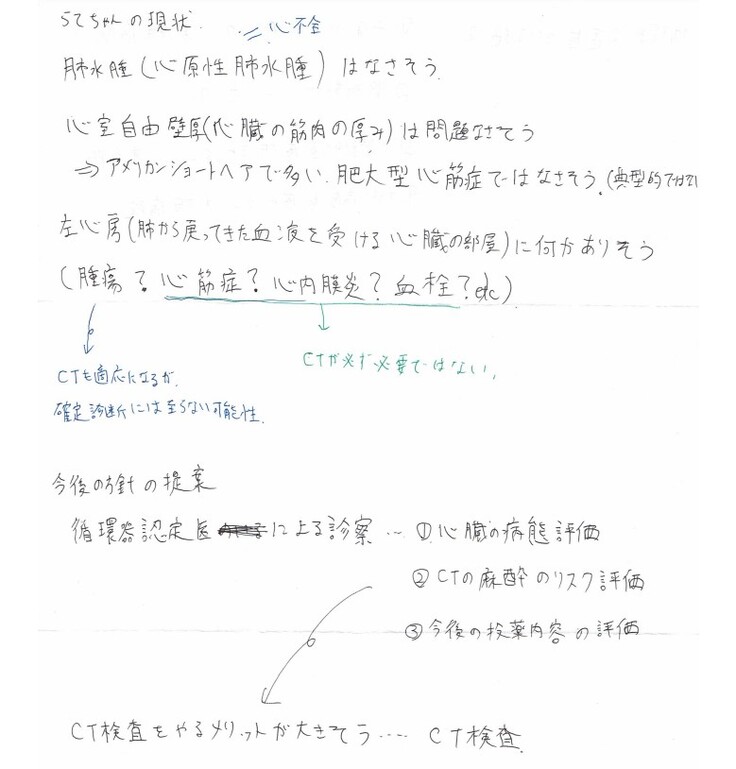 らてちゃんの現状.
= 心不全
肺水腫(心原性肺水腫)はなさそう.
心室自由壁厚(心臓の筋肉の厚み)は問題なさそう
⇒アメリカンショートヘアで多い、肥大型心筋症ではなさそう.(典型的ではない
左心房(肺から戻ってきた血液を受ける心臓の部屋)に何かありそう
(腫瘍?心筋症?心内膜炎?血栓?etc)
CTが必ず必要ではない.
CTも適応になるが、
確定診断には至らない可能性.
今後の方針の提案
循環器認定医による診察… ①心臓の病態評価
②CTの麻酔のリスク評価
③今後の投薬内容の評価
CT検査をやるメリットが大きそう…. CT検査.